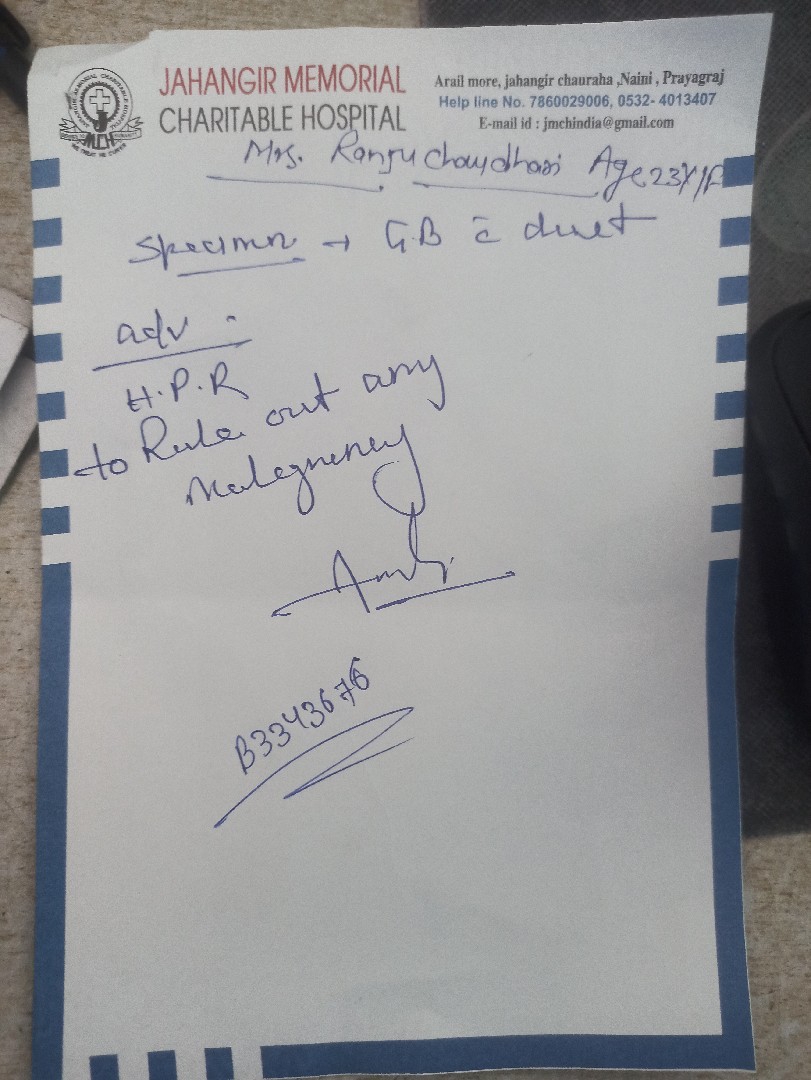 JAHANGIR MEMORIAL
CHARITABLE HOSPITAL
Arail more, jahangir chauraha ,Naini , Prayagraj
Help line No. 7860029006, 0532- 4013407
E-mail id : jmchindia@gmail.com
JMCH
Mrs. Ranju Chaudhari Age 23Y/F
Specimen → G.B c̄ duct
adv :
H.P.R
to Rule out any
Malegneney
B3343676